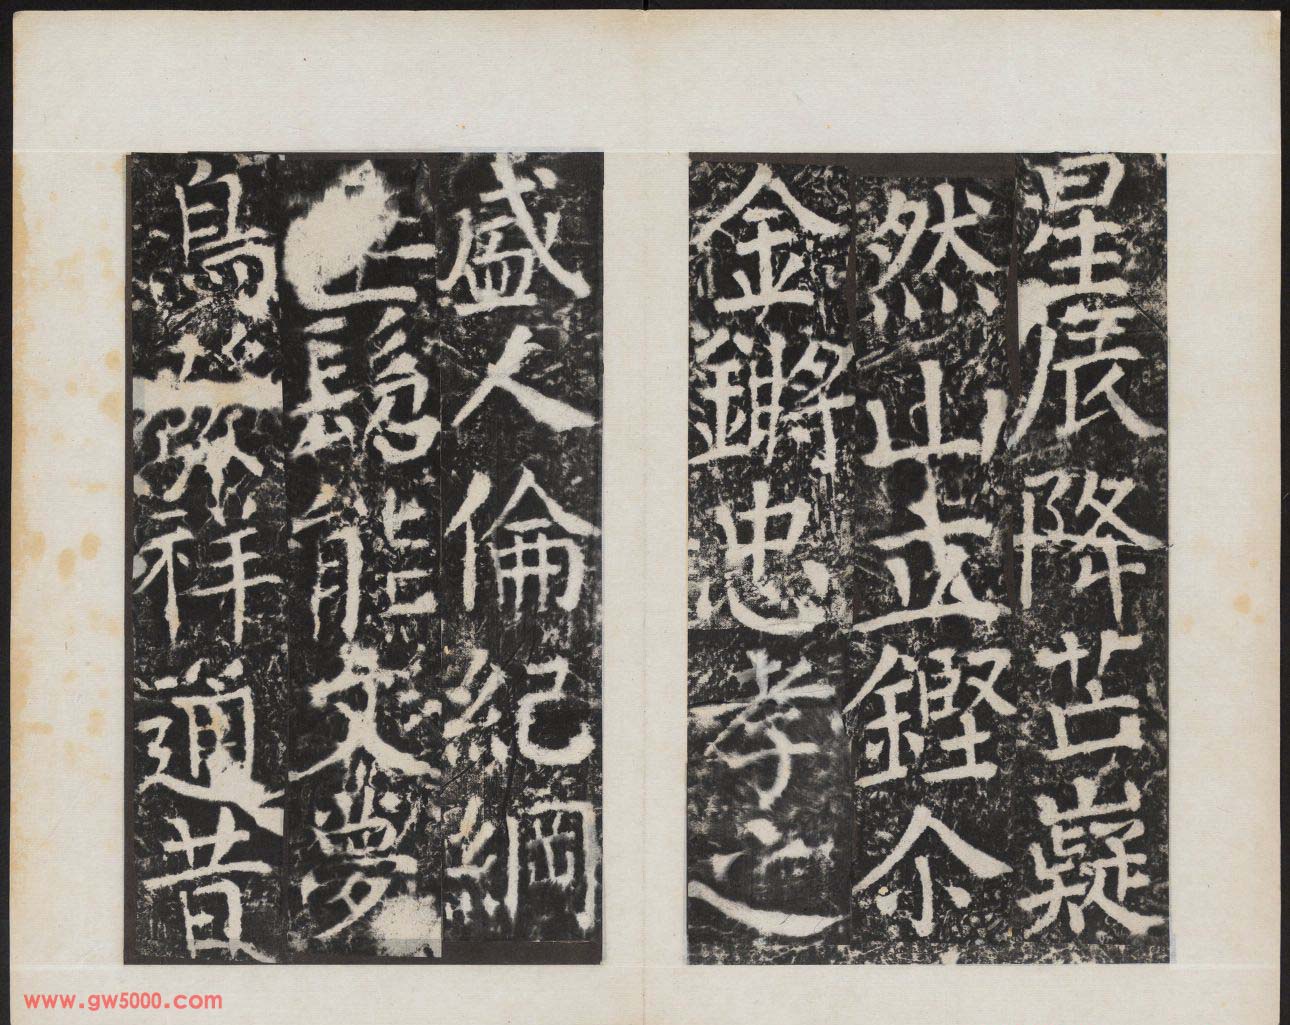 星辰降芒嶷
然山立鏗尒
金鏘忠孝之
盛人倫紀綱
髫能文夢
鳥祥昔
www.gw5000.com